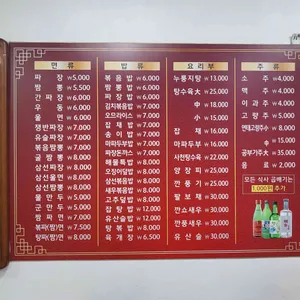 면 류
짜 장 ₩5,000
짬 뽕 ₩5,500
간 짜 장 ₩6,000
우 동 ₩6,000
울 면 ₩6,000
쟁반짜장 ₩7,000
유슬짜장 ₩7,000
볶음짬뽕 ₩7,000
굴 짬 뽕 ₩8,000
삼선짜장 ₩7,000
삼선우동 ₩8,000
삼선울면 ₩8,000
삼선짬뽕 ₩8,000
물 만 두 ₩5,000
군 만 두 ₩5,000
짬 짜 면 ₩7,000
볶짜(짬)면 ₩7,500
탕짜(짬)면 ₩8,000
밥 류
볶 음 밥 ₩6,000
짬 뽕 밥 ₩6,000
짜 장 밥 ₩6,000
김치볶음밥 ₩7,000
오므라이스 ₩7,000
잡 채 밥 ₩7,000
송 이 밥 ₩7,000
마파두부밥 ₩7,000
짜장돈까스 ₩7,000
해물특밥 ₩8,000
오징어덮밥 ₩8,000
삼선볶음밥 ₩8,000
새우볶음밥 ₩8,000
고추덮밥 ₩8,000
잡 탕 밥 ₩12,000
유산슬밥 ₩12,000
탕 볶 밥 ₩8,000
육 개 장 ₩7,500
요 리 부
누룽지탕 ₩13,000
탕수육 大 ₩25,000
中 ₩18,000
小 ₩15,000
잡 채 ₩18,000
마파두부 ₩18,000
사천탕수육 ₩22,000
양 장 피 ₩25,000
깐 풍 기 ₩25,000
팔 보 채 ₩30,000
깐쇼새우 ₩30,000
깐풍새우 ₩30,000
유 산 슬 ₩30,000
주 류
소 주 ₩4,000
맥 주 ₩4,000
이 과 주 ₩4,000
고 량 주 ₩5,000
소 ₩15,000
공부가주 大 ₩35,000
음 료 ₩2,000
모든 식사 곱빼기는
1,000원 추가